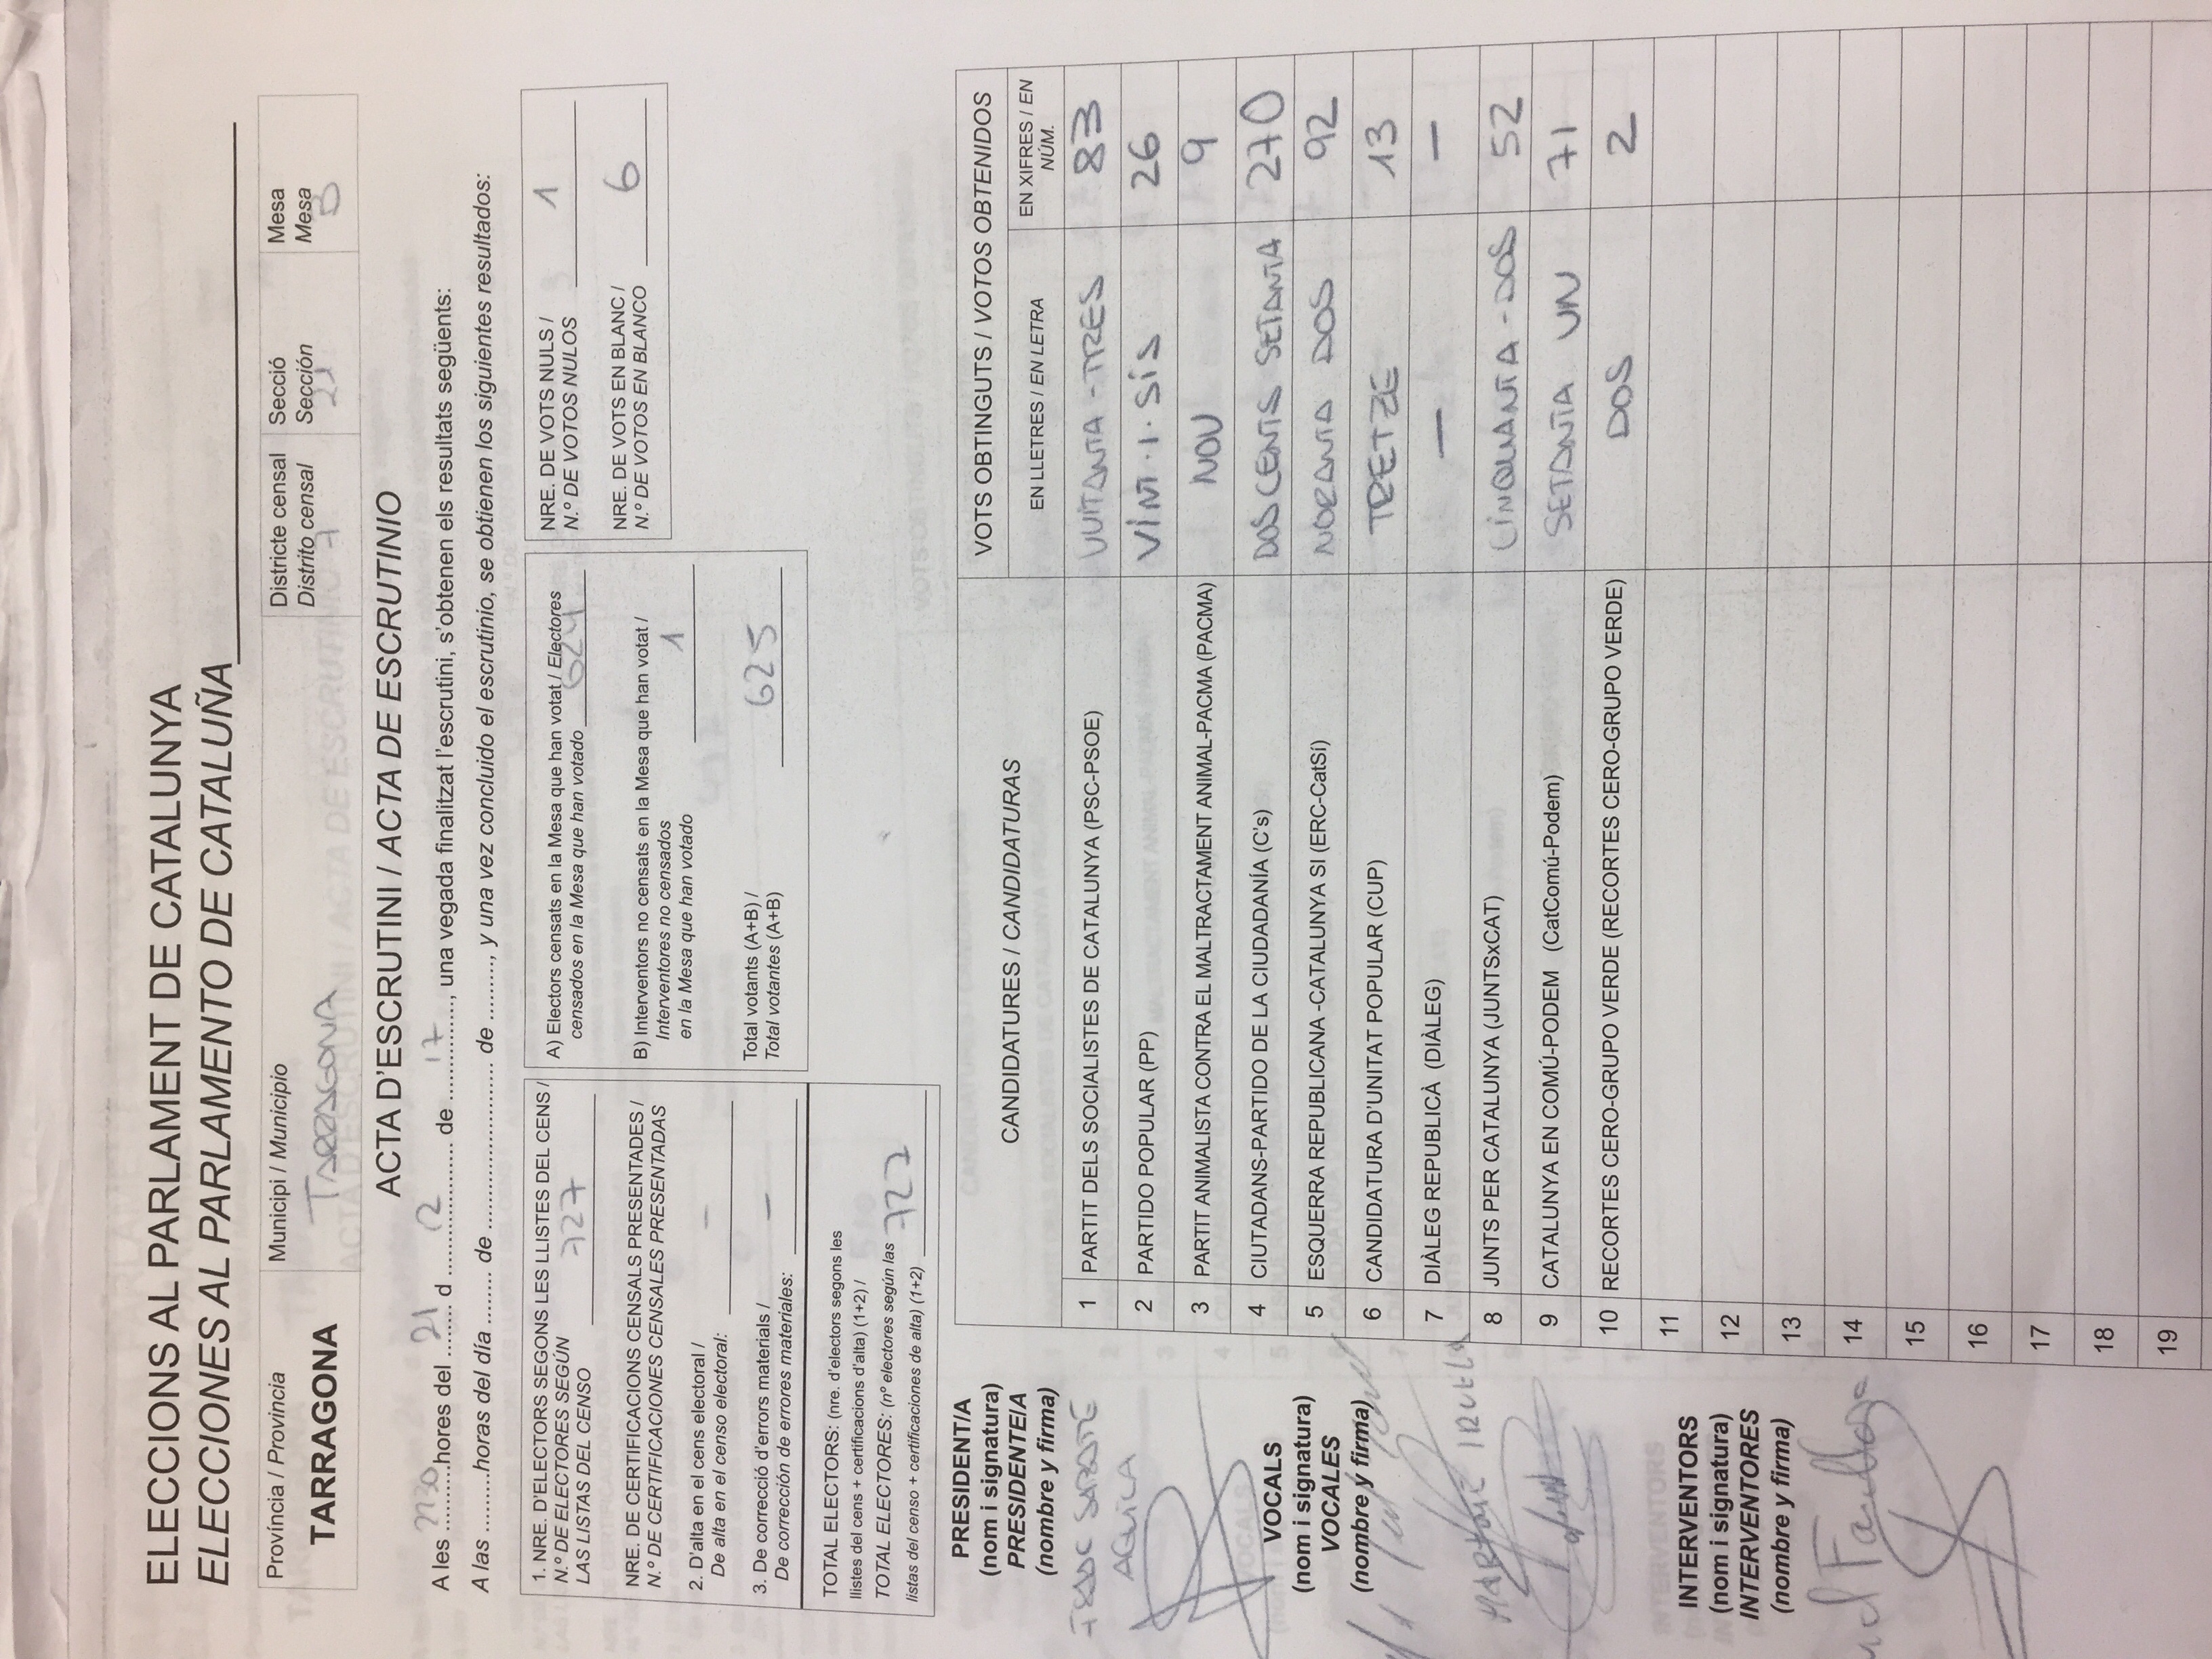 ELECCIONS AL PARLAMENT DE CATALUNYA
ELECCIONES AL PARLAMENTO DE CATALUÑA
Província / Provincia
TARRAGONA
Municipi / Municipio
TARRAGONA
Districte censal
Distrito censal
7
Secció
Sección
21
Mesa
Mesa
B
ACTA D'ESCRUTINI / ACTA DE ESCRUTINIO
A les 2230 hores del 21 d 12 de 17, una vegada finalitzat l'escrutini, s'obtenen els resultats següents:
A las .........horas del día ........ de .......................... de ........., y una vez concluido el escrutinio, se obtienen los siguientes resultados:
1. NRE. D'ELECTORS SEGONS LES LLISTES DEL CENS /
N.º DE ELECTORES SEGÚN
LAS LISTAS DEL CENSO 727
NRE. DE CERTIFICACIONS CENSALS PRESENTADES /
N.º DE CERTIFICACIONES CENSALES PRESENTADAS
2. D'alta en el cens electoral /
De alta en el censo electoral: –
3. De correcció d'errors materials /
De corrección de errores materiales: –
TOTAL ELECTORS: (nre. d'electors segons les
llistes del cens + certificacions d'alta) (1+2) /
TOTAL ELECTORES: (nº electores según las
listas del censo + certificaciones de alta) (1+2) 727
A) Electors censats en la Mesa que han votat / Electores
censados en la Mesa que han votado 624
B) Interventors no censats en la Mesa que han votat /
Interventores no censados
en la Mesa que han votado 1
Total votants (A+B) /
Total votantes (A+B) 625
NRE. DE VOTS NULS /
N.º DE VOTOS NULOS 1
NRE. DE VOTS EN BLANC /
N.º DE VOTOS EN BLANCO 6
PRESIDENT/A
(nom i signatura)
PRESIDENTE/A
(nombre y firma)
ISAAC SABATÉ
AGUILA
VOCALS
(nom i signatura)
VOCALES
(nombre y firma)
IRUELA
INTERVENTORS
(nom i signatura)
INTERVENTORES
(nombre y firma)
CANDIDATURES / CANDIDATURAS
VOTS OBTINGUTS / VOTOS OBTENIDOS
EN LLETRES / EN LETRA
EN XIFRES / EN NÚM.
1 PARTIT DELS SOCIALISTES DE CATALUNYA (PSC-PSOE) VUITANTA-TRES 83
2 PARTIDO POPULAR (PP) VINT·I·SIS 26
3 PARTIT ANIMALISTA CONTRA EL MALTRACTAMENT ANIMAL-PACMA (PACMA) NOU 9
4 CIUTADANS-PARTIDO DE LA CIUDADANÍA (C's) DOSCENTS SETANTA 270
5 ESQUERRA REPUBLICANA -CATALUNYA SI (ERC-CatSí) NORANTA DOS 92
6 CANDIDATURA D'UNITAT POPULAR (CUP) TRETZE 13
7 DIÀLEG REPUBLICÀ (DIÀLEG) — —
8 JUNTS PER CATALUNYA (JUNTSxCAT) CINQUANTA-DOS 52
9 CATALUNYA EN COMÚ-PODEM (CatComú-Podem) SETANTA UN 71
10 RECORTES CERO-GRUPO VERDE (RECORTES CERO-GRUPO VERDE) DOS 2
11
12
13
14
15
16
17
18
19